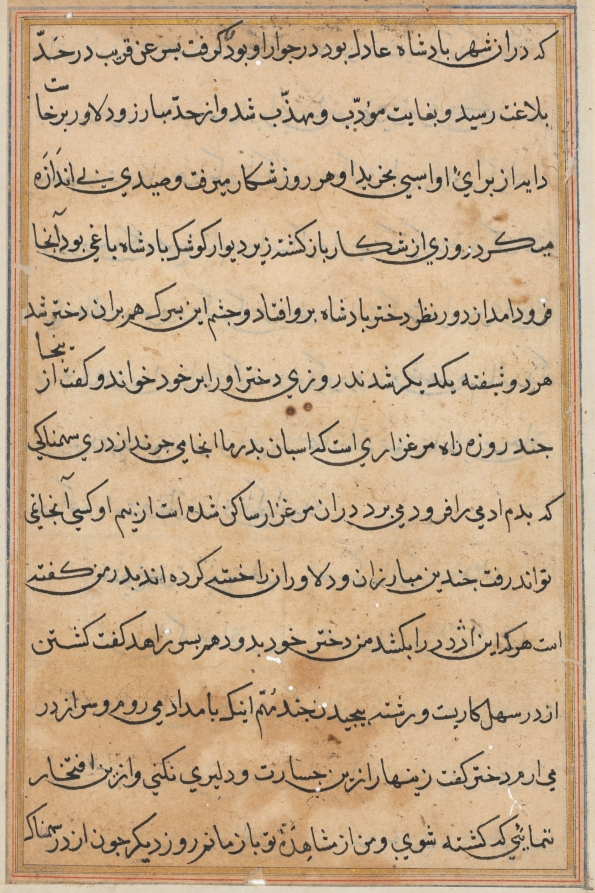 که در ان شهر بادشاه عادل بود در جوار او بود گرفت بس عن قریب در حدّ
بلاغت رسید و بغایت مؤدّب و مهذّب شد و از حدّ مبارز و دلاور برخاست
داید از برای او اسبی بخرید او هر روز شکار میرفت و صیدی بی اندازه
میکرد روزی از شکار باز کشته زیر دیوار کوشک بادشاه باغی بود آنجا
فرود امد از دور نظر دختر بادشاه برو افتاد و چشم این بسرک هم بران دختر شد
هر دو شیفته یکدیکر شدند روزی دختر او را بر خود خواند و کفت از ینجا
جند روزه راه مرغزاری است که اسبان بدر ما انجا می جرند اژدری سهمناکی
که بدم ادمی را فرود می برد در ان مرغزار ساکن شده است از بیم او کسی آنجا نمی
تواند رفت جندین مبارزان و دلاوران را خسته کرده اند بدر من کفته
است هر که این اژدر را بکشد من دختر خود بدو دهم بس زاهد کفت کشتن
اژدر سهل کاریست و رشته بیجید نجند مهّم اینک بامداد می روم و سر اژدر
می ارم دختر کفت زینهار ازین جسارت و دلیری نکنی و ازین افتخار
ننمائی که کشته شوی و من از مشاهدۀ تو باز مانم روز دیکر جون اژدر سهمناک